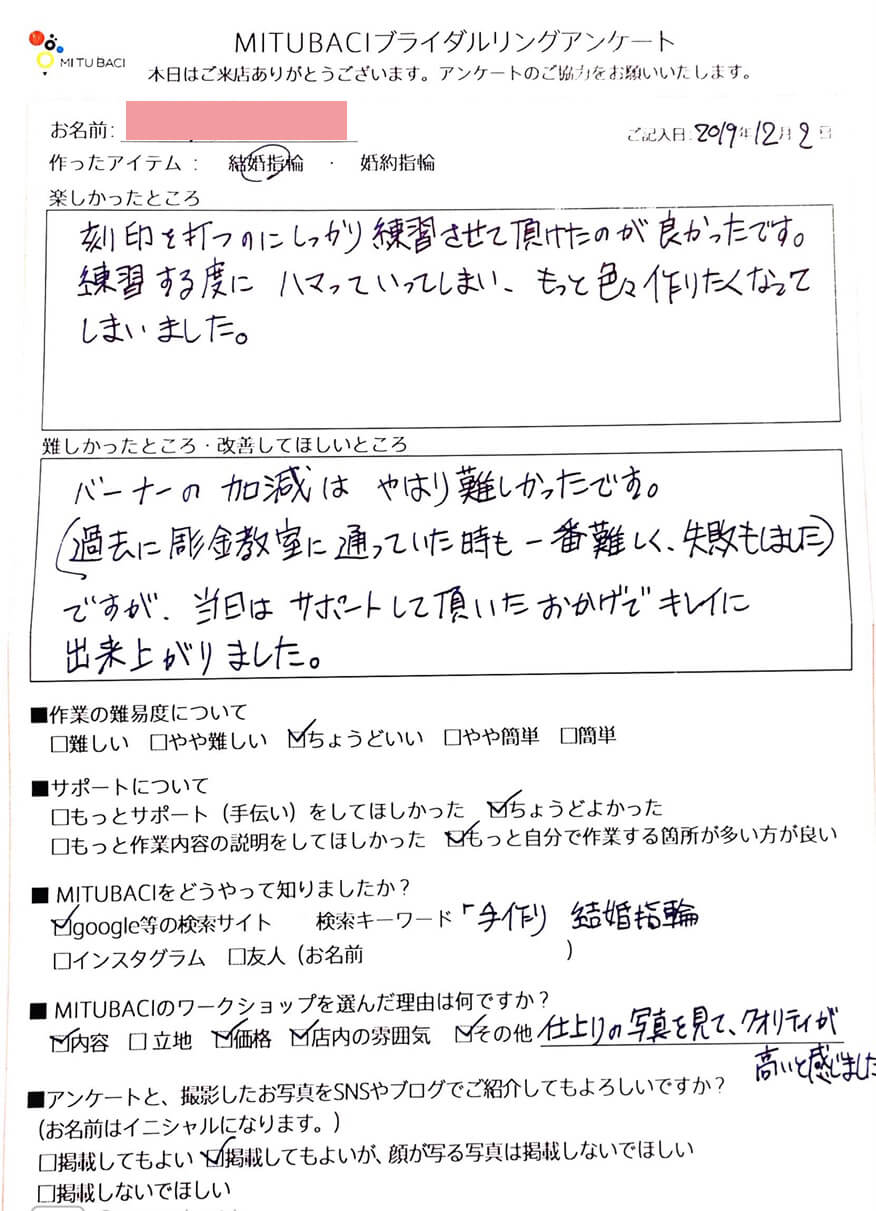 MITUBACI
MITUBACIブライダルリングアンケート
本日はご来店ありがとうございます。アンケートのご協力をお願いいたします。
お名前:
ご記入日: 2019年12月2日
作ったアイテム : 結婚指輪 ・ 婚約指輪
楽しかったところ
刻印を打つのにしっかり練習させて頂けたのが良かったです。
練習する度に ハマっていってしまい、もっと色々作りたくなって
しまいました。
難しかったところ・改善してほしいところ
バーナーの加減は やはり難しかったです。
(過去に彫金教室に通っていた時も一番難しく、失敗もしました)
ですが、当日はサポートして頂いたおかげでキレイに
出来上がりました。
■作業の難易度について
□難しい □やや難しい ☑ちょうどいい □やや簡単 □簡単
■サポートについて
□もっとサポート（手伝い）をしてほしかった ☑ちょうどよかった
□もっと作業内容の説明をしてほしかった ☑もっと自分で作業する箇所が多い方が良い
■ MITUBACIをどうやって知りましたか？
☑google等の検索サイト 検索キーワード「手作り 結婚指輪
□インスタグラム □友人（お名前 ）
■ MITUBACIのワークショップを選んだ理由は何ですか？
☑内容 □立地 ☑価格 ☑店内の雰囲気 ☑その他 仕上りの写真を見て、クオリティが
高いと感じました
■アンケートと、撮影したお写真をSNSやブログでご紹介してもよろしいですか？
（お名前はイニシャルになります。）
□掲載してもよい ☑掲載してもよいが、顔が写る写真は掲載しないでほしい
□掲載しないでほしい